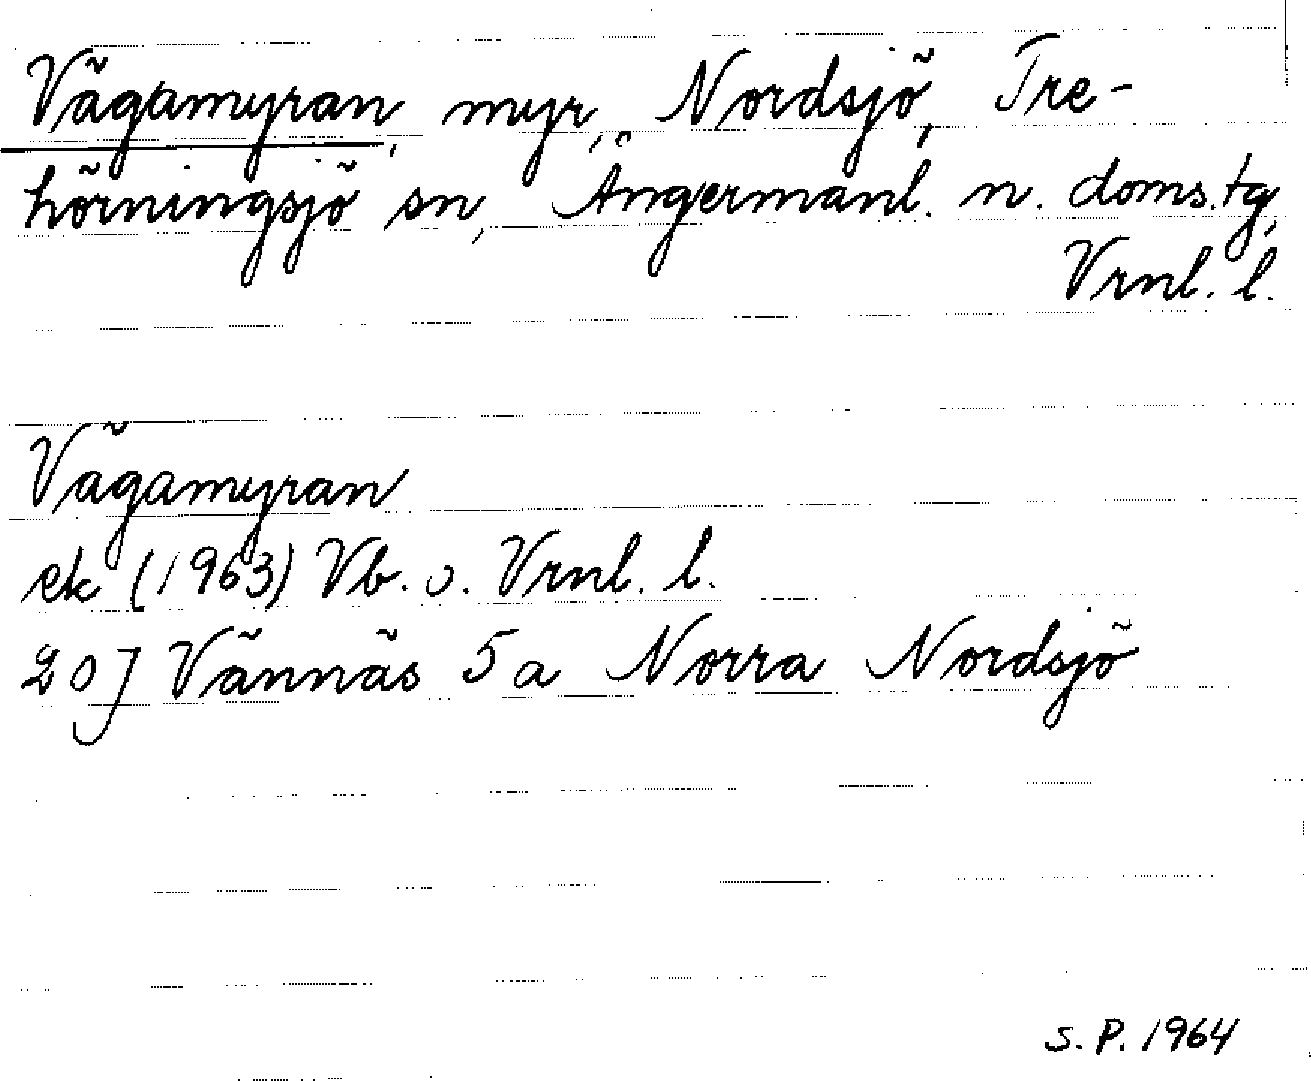 Vägamyran, myr, Nordsjö, Tre-
hörningsjö sn, Ångermanl. n. doms.tg,
Vrnl. l.
Vägamyran
ek (1963) Vb. o. Vrnl. l.
20J Vännäs 5a Norra Nordsjö
S. P. 1964